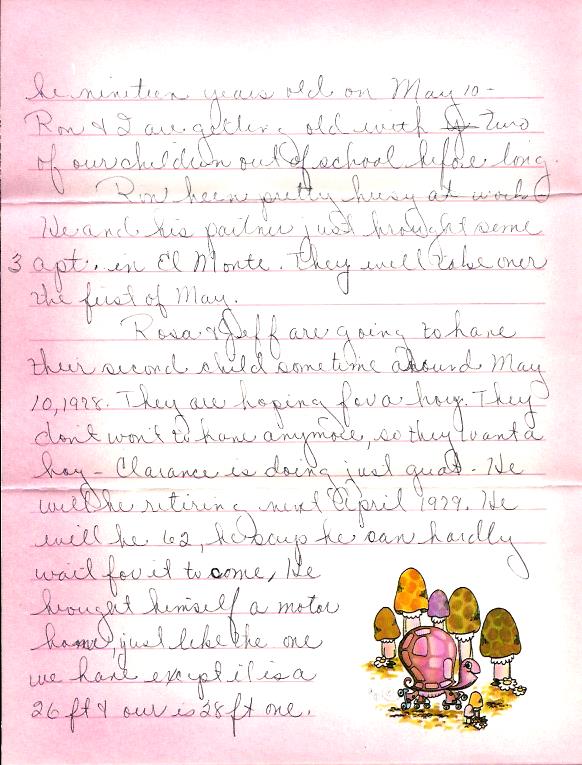 be nineteen years old on May 10-
Ron & I are getting old with Two
of our children out of school before long.
Ron been pretty busy at work
He and his partner just brought some
3 apt. in El Monte. They will take over
the first of May.
Rosa & Jeff are going to have
their second child sometime around May
10, 1978. They are hoping for a boy. They
don't won't to have anymore, so they want a
boy - Clarance is doing just great. He
will be retiring next April 1979. He
will be 62, he says he can hardly
wait for it to come, He
brought himself a motor
home, just like the one
we have except it is a
26 ft & our is 28 ft one.